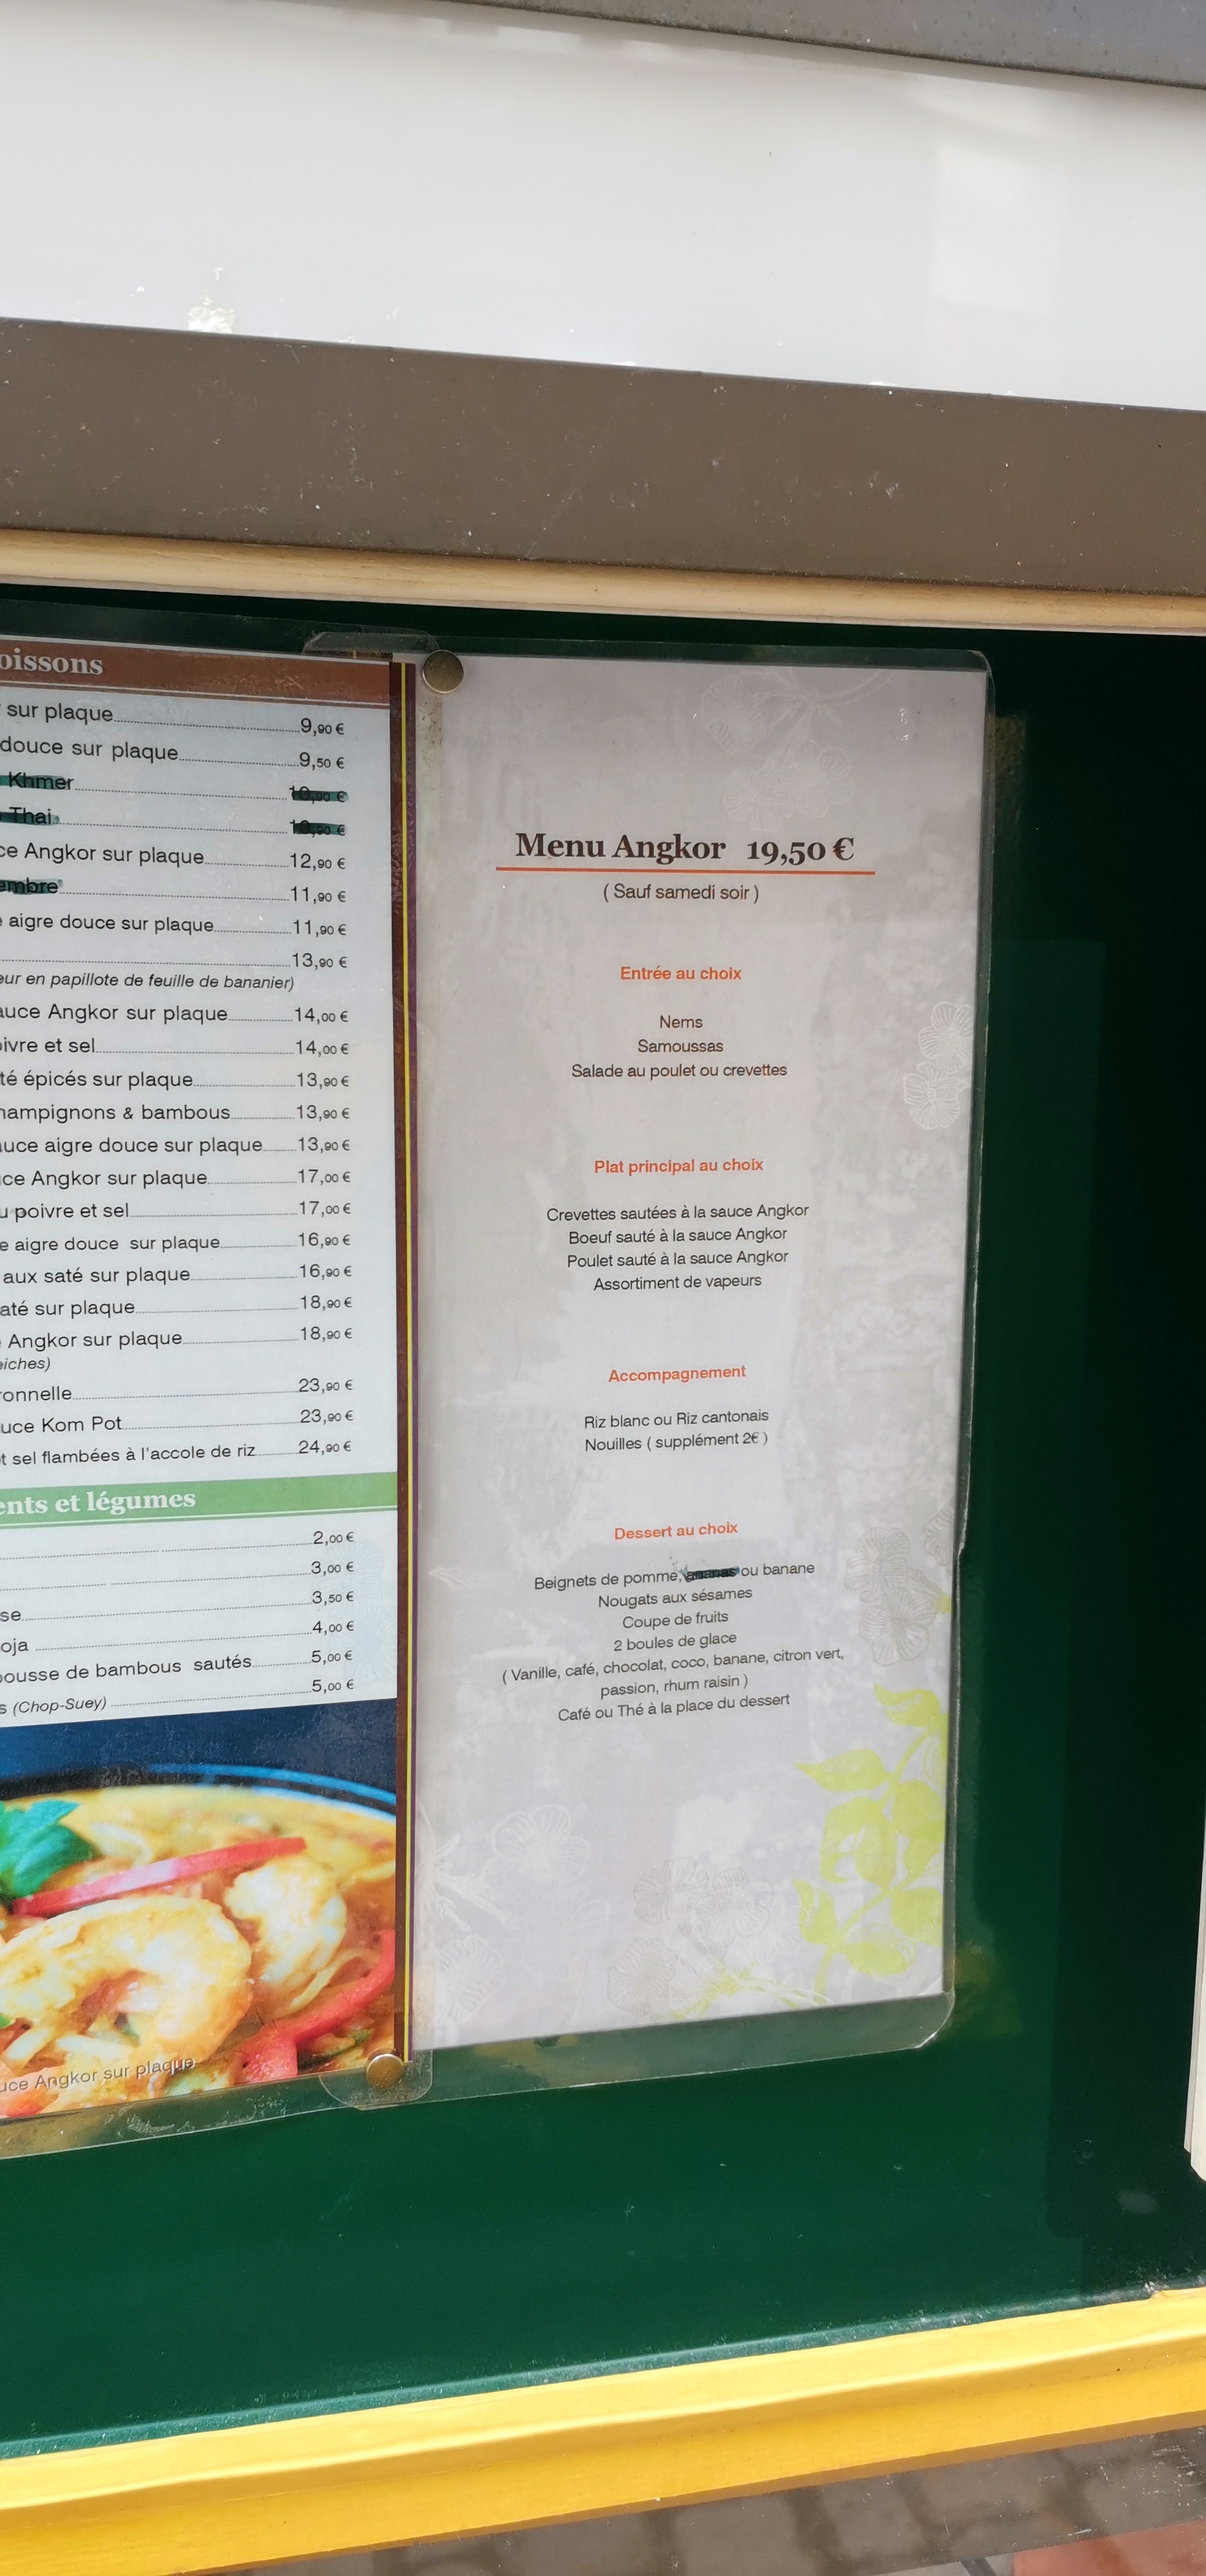 oissons
sur plaque 9,90 €
douce sur plaque 9,50 €
Khmer 10,90 €
Thai 10,90 €
ce Angkor sur plaque 12,90 €
embre 11,90 €
aigre douce sur plaque 11,90 €
13,90 €
eur en papillote de feuille de bananier)
auce Angkor sur plaque 14,00 €
ivre et sel 14,00 €
té épicés sur plaque 13,90 €
hampignons & bambous 13,90 €
auce aigre douce sur plaque 13,90 €
ce Angkor sur plaque 17,00 €
u poivre et sel 17,00 €
e aigre douce sur plaque 16,90 €
aux saté sur plaque 16,90 €
até sur plaque 18,90 €
Angkor sur plaque 18,90 €
eiches)
ronnelle 23,90 €
uce Kom Pot 23,90 €
t sel flambées à l'accole de riz 24,90 €
ents et légumes
2,00 €
3,00 €
se 3,50 €
oja 4,00 €
pousse de bambous sautés 5,00 €
s (Chop-Suey) 5,00 €
uce Angkor sur plaque
Menu Angkor 19,50 €
( Sauf samedi soir )
Entrée au choix
Nems
Samoussas
Salade au poulet ou crevettes
Plat principal au choix
Crevettes sautées à la sauce Angkor
Boeuf sauté à la sauce Angkor
Poulet sauté à la sauce Angkor
Assortiment de vapeurs
Accompagnement
Riz blanc ou Riz cantonais
Nouilles ( supplément 2€ )
Dessert au choix
Beignets de pomme, ananas ou banane
Nougats aux sésames
Coupe de fruits
2 boules de glace
( Vanille, café, chocolat, coco, banane, citron vert,
passion, rhum raisin )
Café ou Thé à la place du dessert